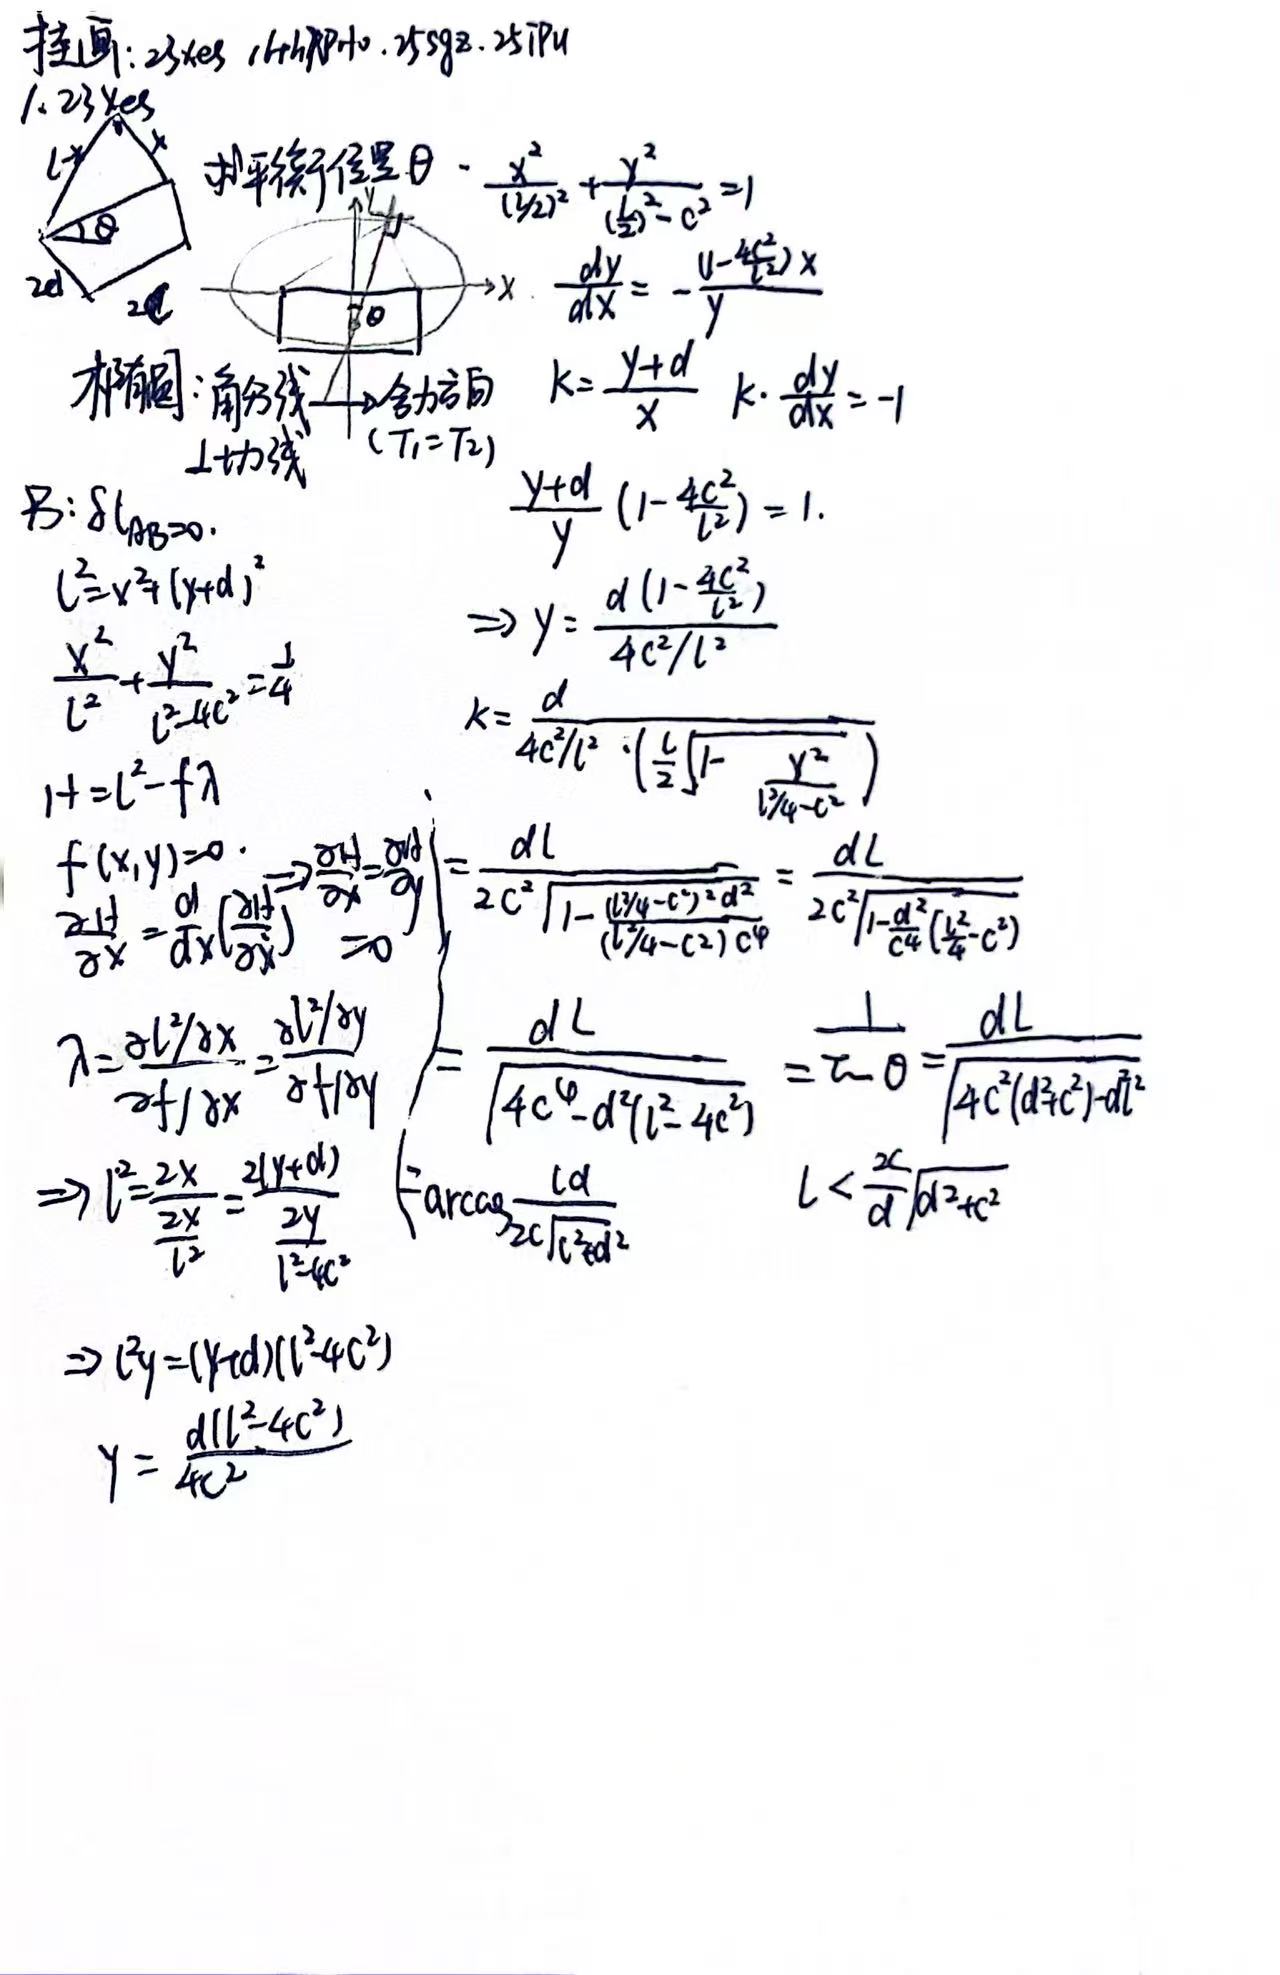 挂画: 23xes, 25sgz. 25iPu
1. 23xes
l-x x
θ
2d 2c
求平衡位置θ.
y x θ
椭圆: 角分线 → 合力方向
⊥切线 (T₁=T₂)
x²/(l/2)² + y²/((l/2)²-c²) = 1
dy/dx = -(1-4c²/l²)x/y
k = (y+d)/x k·dy/dx = -1
(y+d)/y (1-4c²/l²) = 1.
⇒ y = d(1-4c²/l²)/(4c²/l²)
k = d/(4c²/l² · (l/2 √(1 - y²/(l²/4-c²))))
= dL/(2c²√(1-(l²/4-c²)²d²/((l²/4-c²)c⁴))) = dL/(2c²√(1-d²/c⁴(l²/4-c²)))
= dL/√(4c⁴-d²(l²-4c²)) = 1/tanθ = dL/√(4c²(d²+c²)-d²l²)
= arccos ld/(2c√(c²+d²)) l < 2c/d √(d²+c²)
另: δl_AB=0.
l² = x²+(y+d)²
x²/l² + y²/(l²-4c²) = 1/4
H = l²-fλ
f(x,y)=0.
∂H/∂x = d/dx(∂H/∂ẋ) ⇒ ∂H/∂x = ∂H/∂y = 0
λ = (∂l²/∂x)/(∂f/∂x) = (∂l²/∂y)/(∂f/∂y)
⇒ l² = 2x/(2x/l²) = 2(y+d)/(2y/(l²-4c²))
⇒ l²y = (y+d)(l²-4c²)
y = d(l²-4c²)/4c²